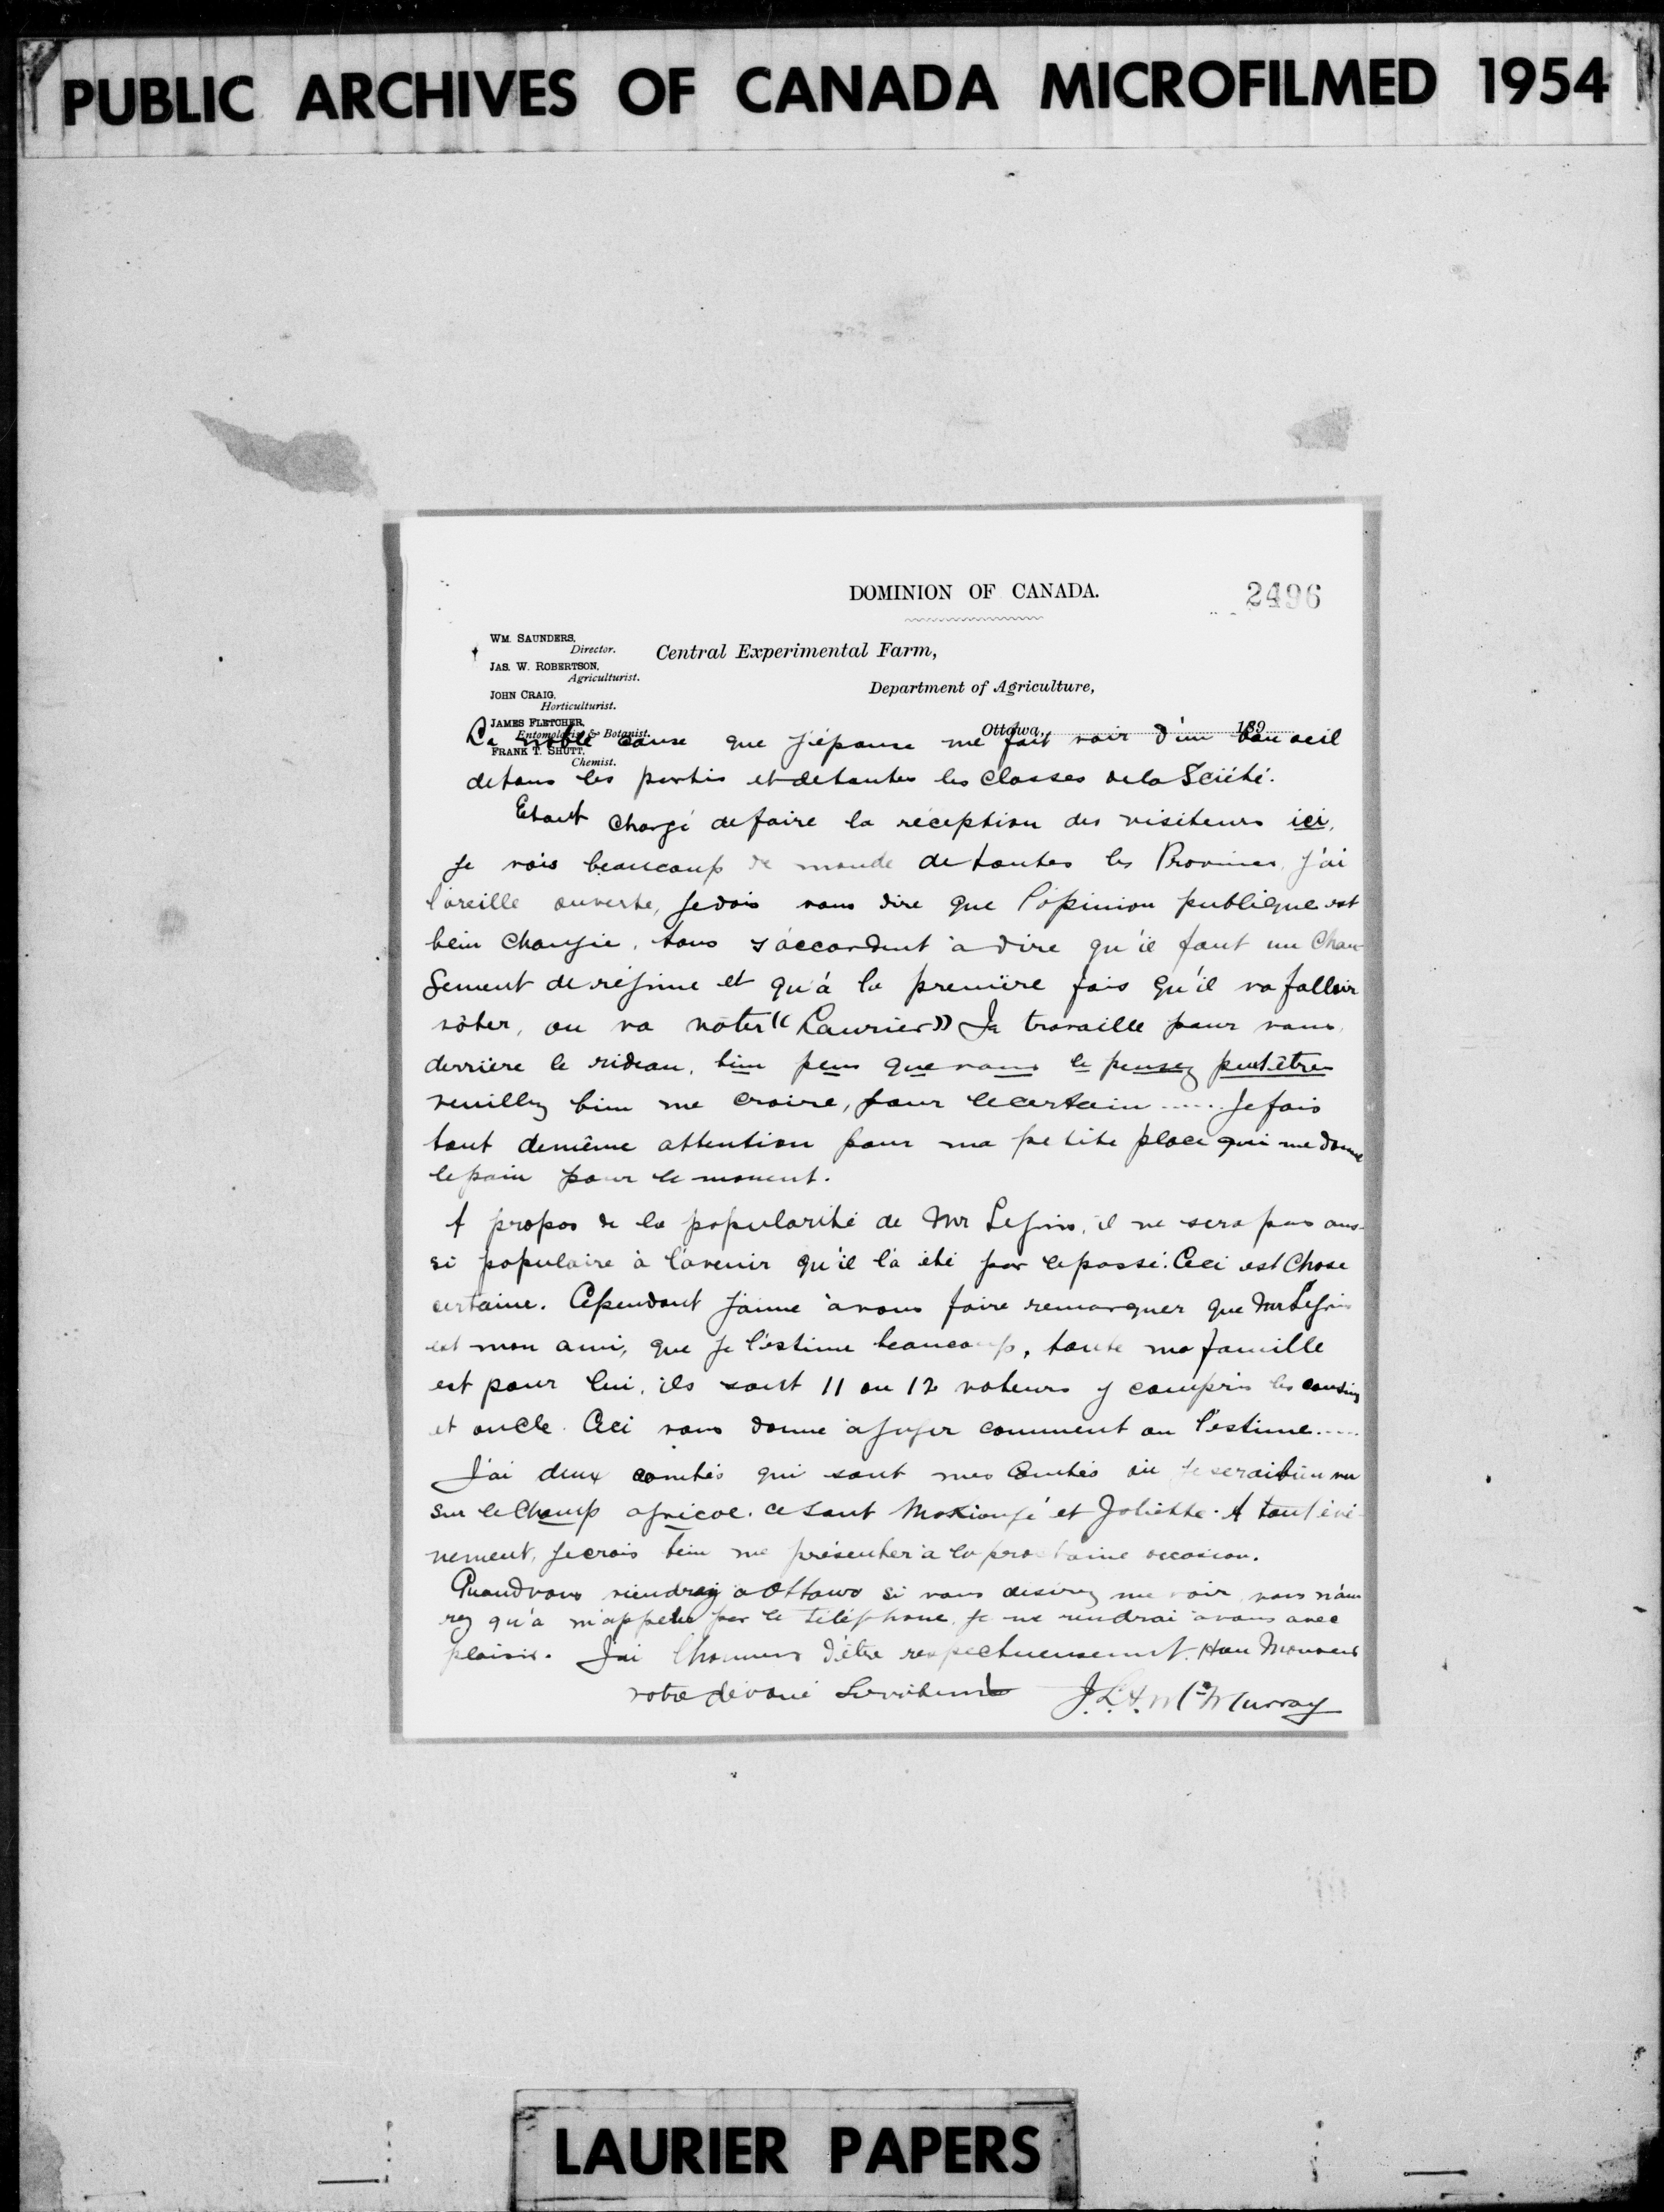 PUBLIC ARCHIVES OF CANADA MICROFILMED 1954
DOMINION OF CANADA.
2496
WM. SAUNDERS,
Director.
JAS. W. ROBERTSON,
Agriculturist.
JOHN CRAIG,
Horticulturist.
JAMES FLETCHER,
Entomologist & Botanist.
FRANK T. SHUTT,
Chemist.
Central Experimental Farm,
Department of Agriculture,
Ottawa, 189
La noble cause que j'épouse me fait voir d'un bon oeil
de tous les partis et de toutes les classes de la Sciété.
Etant chargé de faire la réception des visiteurs ici,
je vois beaucoup de monde de toutes les Provinces, j'ai
l'oreille ouverte, je dois vous dire que l'opinion publique est
bein changée, tous s'accordent à dire qu'il faut un Chan-
gement de régime et qu'à la première fois qu'il va falloir
vôter, on va voter "Laurier" Je travaille pour vous,
derrière le rideau, bien plus que vous le pensez peut-être
veuillez bien me croire, pour le certain ..... Je fais
tout de même attention pour ma petite place qui me donne
le pain pour le moment.
A propos de la popularité de Mr Legris, il ne sera pas aus-
si populaire à l'avenir qu'il l'a été par le passé. Ceci est Chose
certaine. Cependant j'aime à vous faire remarquer que Mr Legris
est mon ami, que je l'estime beaucoup, toute ma famille
est pour lui, ils sont 11 ou 12 voteurs y compris les cousins
et oncle. Ceci vous donne à juger comment on l'estime.....
J'ai deux comtés qui sont mes Comtés où je serai bien vu
sur le Champ agricole. ce sont Maskinongé et Joliette. A tout évé-
nement, je crois bien me présenter à la prochaine occasion.
Quand vous viendrez à Ottawa si vous désirez me voir vous n'au-
rez qu'à m'appeler par le téléphone, je me rendrai à vous avec
plaisir. J'ai l'honneur d'être respectueusement, Hon Monsieur
votre dévoué Serviteur J. L. A. McMurray
LAURIER PAPERS